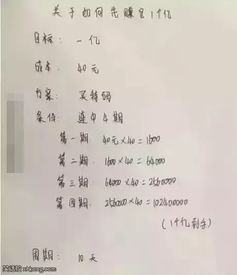 关于如何先赚它1个亿
目标: 一亿
成本: 40元
方案: 买特码
条件: 连中4期
第一期: 40元×40=1600
第二期: 1600×40=64000
第三期: 64000×40=2560000
第四期: 2560000×40=102400000
(1个亿到手)
周期: 10天